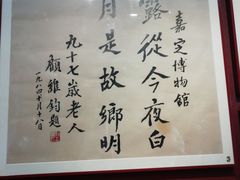 嘉定博物館
露從今夜白
月是故鄉明
九十七歲老人
顧維鈞題
一九八四十月十八日
3